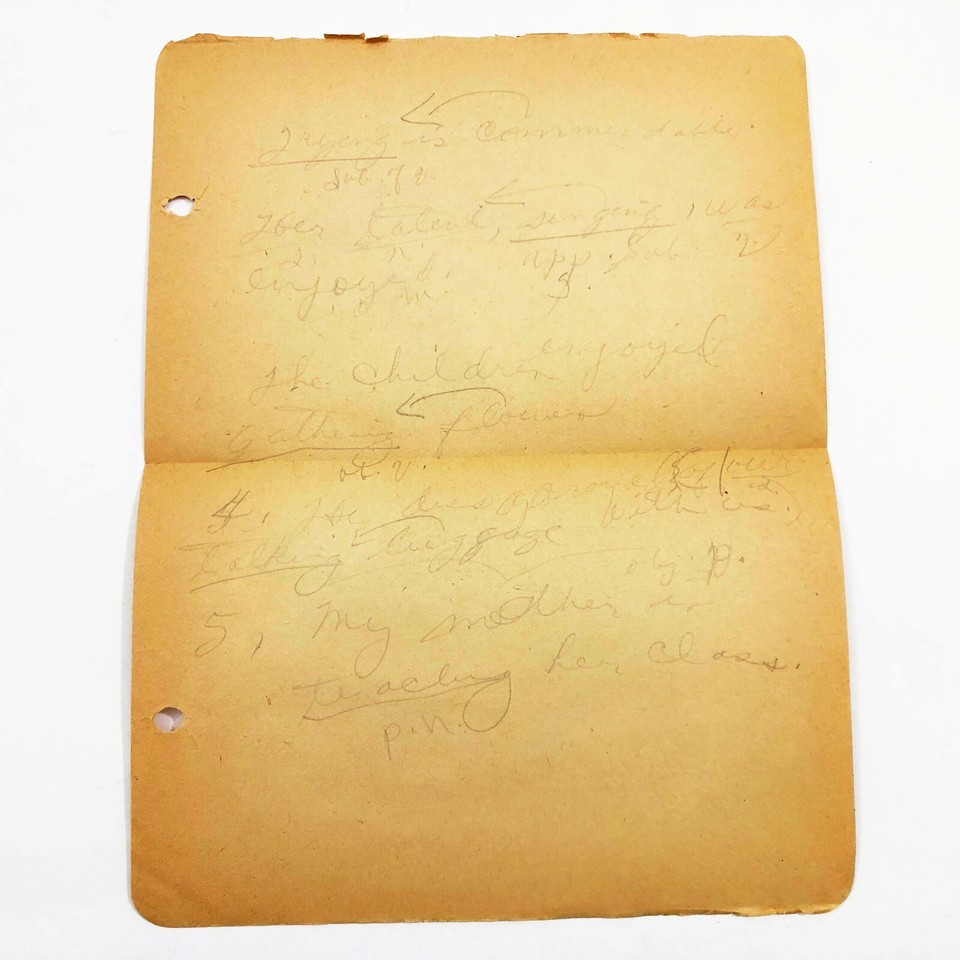 Trying is commendable.
Sub. of v.
Her talent, singing, was
app. sub. v.
enjoyed.
The children enjoyed
gathering flowers
ob. v.
4. He disapproved (of our
talking luggage with us.)
obj. p.
5, My mother is
teaching her class.
p.n.